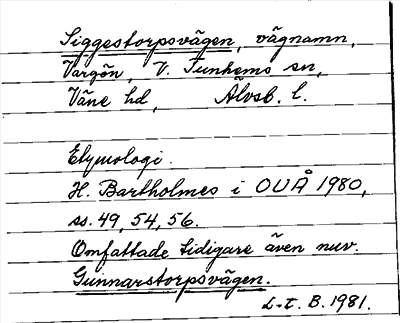 Siggestorpsvägen, vägnamn,
Vargön, V. Tunhems sn,
Väne hd, Älvsb. l.
Etymologi.
H. Bartholmes i OUÅ 1980,
ss. 49, 54, 56.
Omfattade tidigare även nuv.
Gunnarstorpsvägen.
L-t. B. 1981.